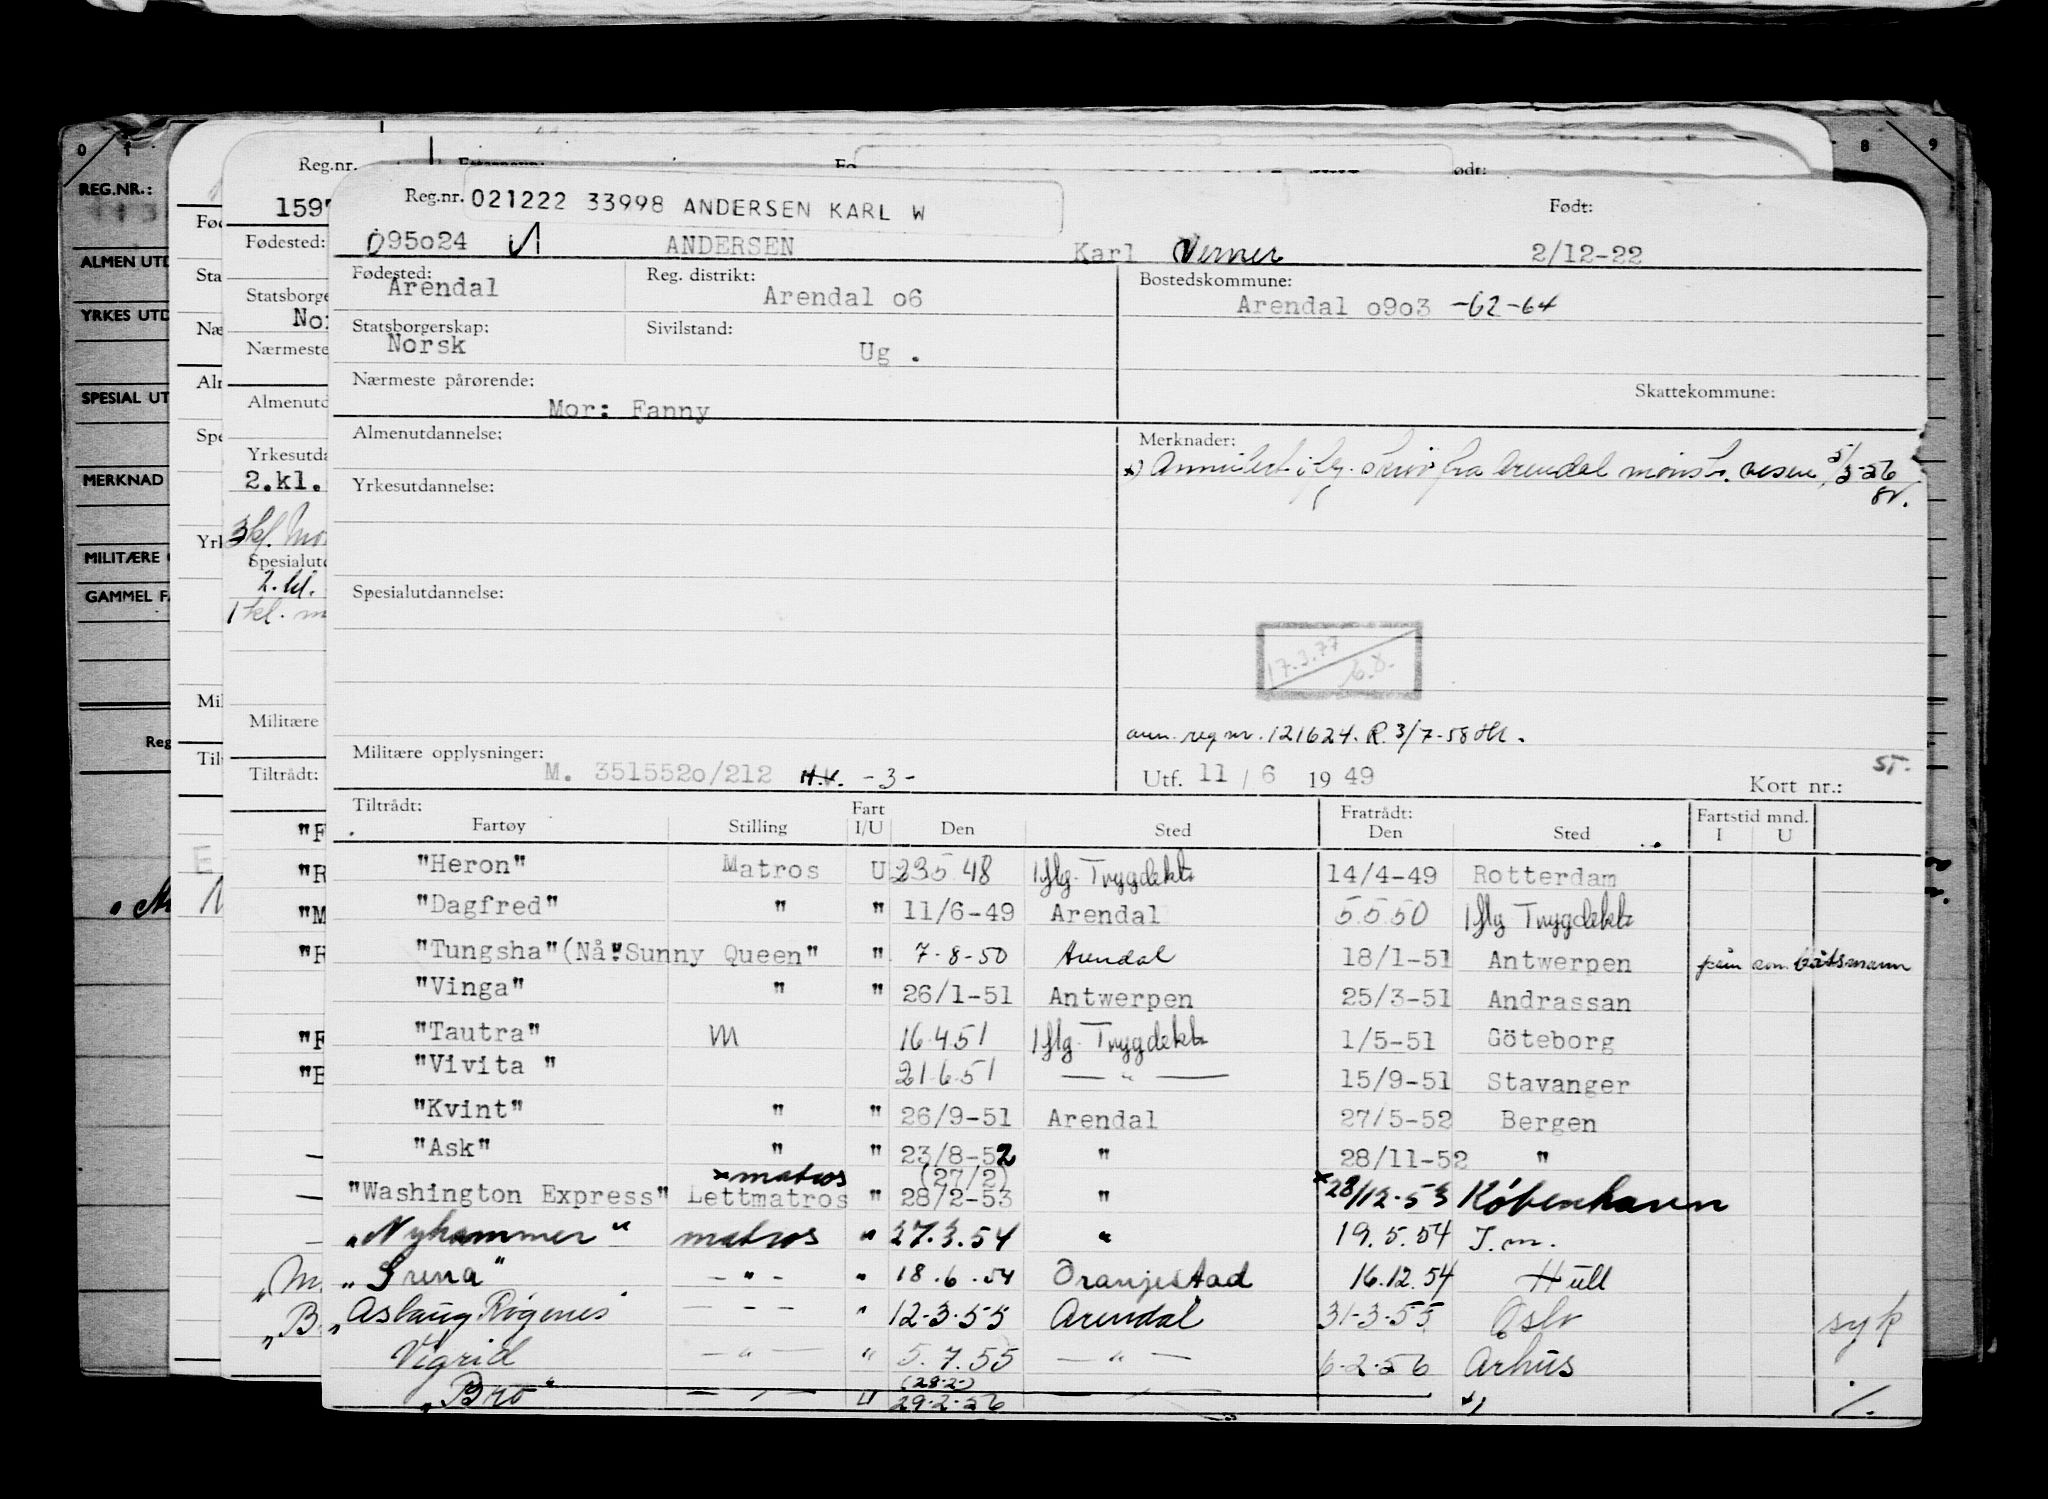 0 1 8 9
REG.NR.:
ALMEN UTD
YRKES UTD
SPECIAL UT
MERKNAD
MILITÆRE
GAMMEL F
Reg
Fød
Sta
Næ
Aln
Spe
Yrk
Mil
Til
Reg.nr.
159
Fødested:
Statsborge
No
Nærmeste
Almenutd
Yrkesutda
2.kl.
3 kl. Mo
Spesialutd
2. kl.
1 kl. m
Militære
Tiltrådt:
"F
"R
"M
"H
"F
"B
Reg.nr. 021222 33998 ANDERSEN KARL W Født:
095024 ANDERSEN Karl Verner 2/12-22
Fødested: Reg. distrikt: Bostedskommune:
Arendal Arendal o6 Arendal o9o3 -62-64
Statsborgerskap: Sivilstand:
Norsk Ug .
Nærmeste pårørende: Skattekommune:
Mor: Fanny
Almenutdannelse: Merknader:
x) Annulert iflg. skriv fra Arendal mønstr. vesen 5/3-56
Yrkesutdannelse:
Spesialutdannelse:
17.3.77
6.8.
ann. reg nr. 121624. R. 3/7-58
Militære opplysninger:
M. 351552o/212 H.V. -3- Utf. 11 / 6 19 49 Kort nr.: ST.
Tiltrådt: Fart Fratrådt: Fartstid mnd.
Fartøy Stilling I/U Den Sted Den Sted I U
"Heron" Matros U 23 5 48 Iflg. Trygdekt. 14/4-49 Rotterdam
"Dagfred" " " 11/6-49 Arendal 5.5.50 Iflg Trygdekt.
"Tungsha"(Nå:"Sunny Queen" " 7-8-50 Arendal 18/1-51 Antwerpen båtsmann
"Vinga" " " 26/1-51 Antwerpen 25/3-51 Andrassan
"Tautra" M 16.4.51 Iflg. Trygdekt. 1/5-51 Göteborg
"Vivita " 21.6.51 — " — 15/9-51 Stavanger
"Kvint" " " 26/9-51 Arendal 27/5-52 Bergen
"Ask" " " 23/8-52 " 28/11-52 "
x matros (27/2)
"Washington Express" Lettmatros " 28/2-53 " x 28/12-53 København
"Nyhammer" matros " 27.3.54 " 19.5.54 T.m.
"Grena" - " - " 18.6.54 Oranjestad 16.12.54 Hull
"Aslaug Røgenes" - - - " 12-3-55 Arendal 31-3-55 Oslo syk
Vigrid — " — " 5.7.55 — " — 6-2-56 Århus
(28.2.)
"Bro" — " — U 29.2.56 — " — x) ./.